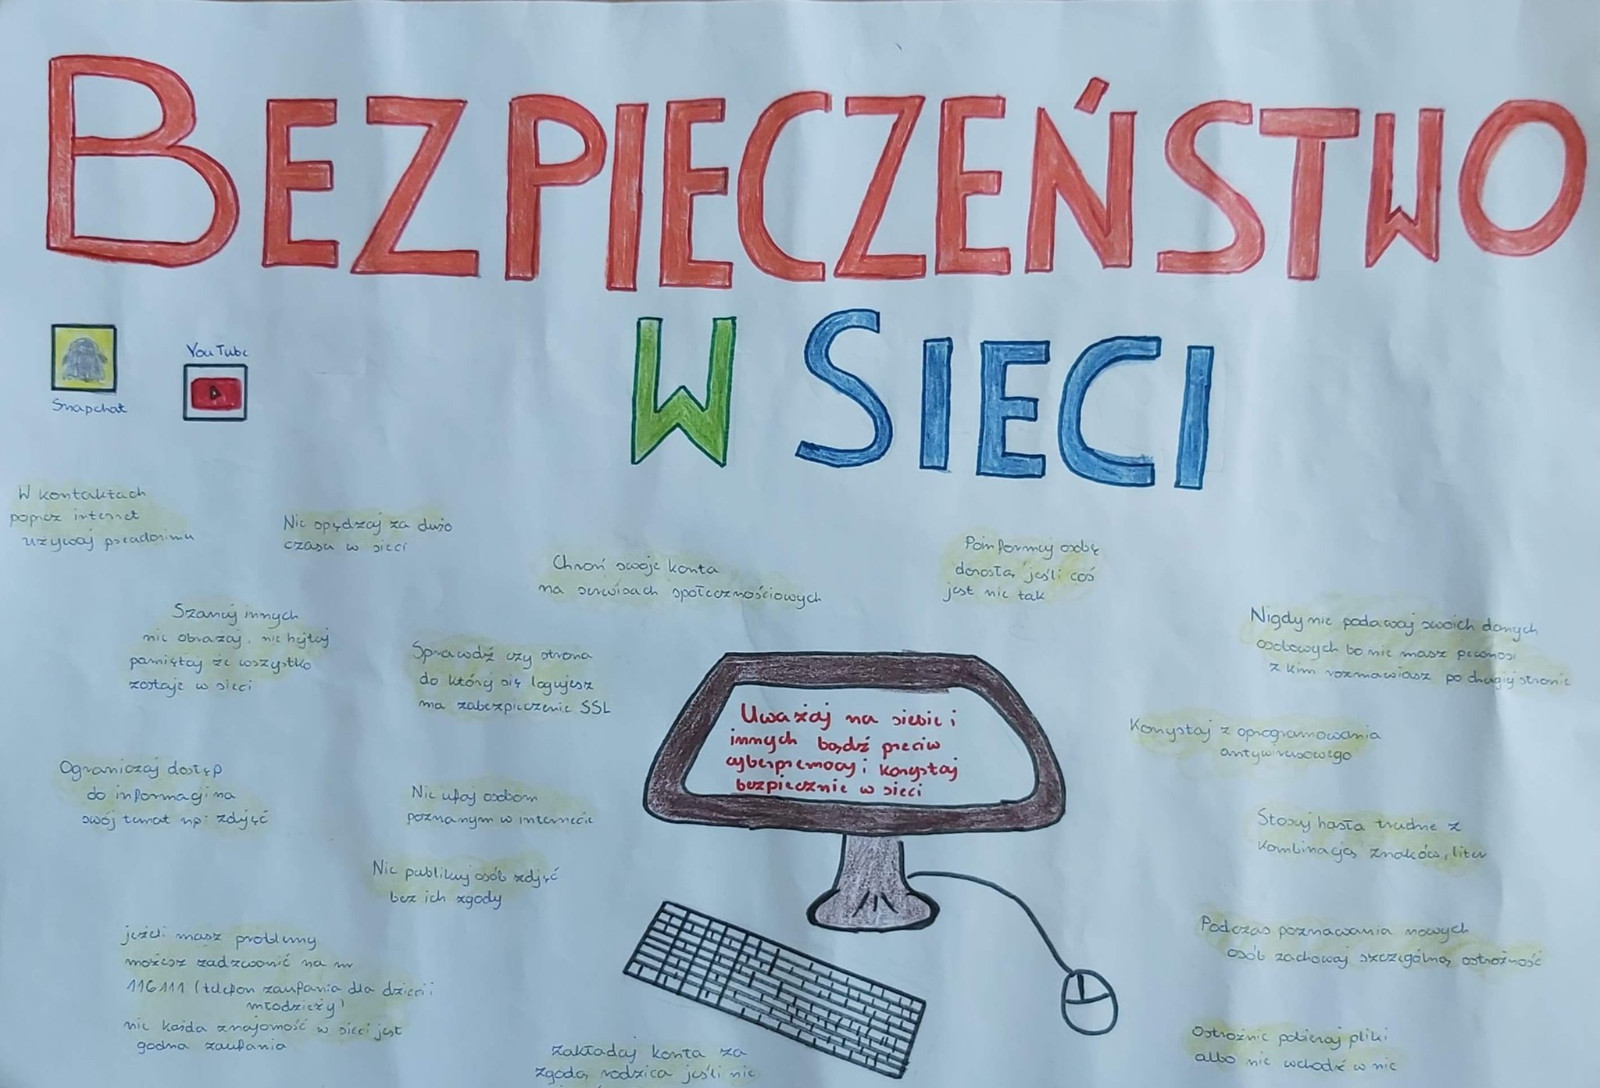 BEZPIECZEŃSTWO
W SIECI
Snapchat
YouTube
W kontaktach
poprzez internet
używaj pseudonimu
Nie spędzaj za dużo
czasu w sieci
Chroń swoje konta
na serwisach społecznościowych
Poinformuj osobę
dorosłą, jeśli coś
jest nie tak
Nigdy nie podawaj swoich danych
osobowych bo nie masz pewności
z kim rozmawiasz po drugiej stronie
Szanuj innych
nie obrażaj, nie hejtuj
pamiętaj że wszystko
zostaje w sieci
Sprawdź czy strona
do której się logujesz
ma zabezpieczenie SSL
Uważaj na siebie i
innych bądź przeciw
cyberprzemocy i korzystaj
bezpiecznie w sieci
Korzystaj z oprogramowania
antywirusowego
Ograniczaj dostęp
do informacji na
swój temat np: zdjęć
Nie ufaj osobom
poznanym w internecie
Stosuj hasła trudne z
kombinacją znaków, liter
Nie publikuj osób zdjęć
bez ich zgody
Podczas poznawania nowych
osób zachowaj szczególną ostrożność
jeżeli masz problemy
możesz zadzwonić na nr
116 111 (telefon zaufania dla dzieci i
młodzieży)
nie każda znajomość w sieci jest
godna zaufania
Ostrożnie pobieraj pliki
albo nie wchodź w nie
Zakładaj konta za
zgodą rodzica jeśli nie